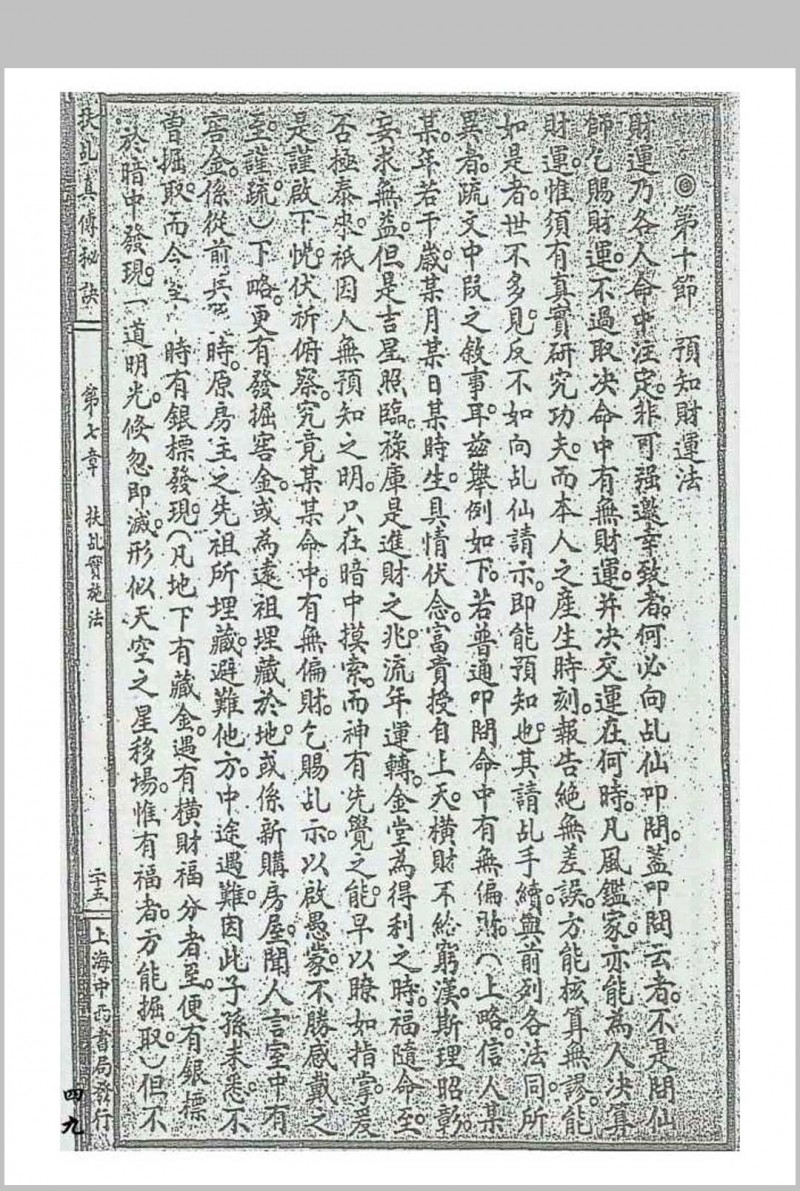 ◎第十節　預知財運法
財運乃各人命中注定。非可强邀幸致者。何必向乩仙叩問。蓋叩問云者。不是問仙
師乞賜財運。不過取决命中有無財運。并决交運在何時。凡風鑑家。亦能為人決算
財運。惟須有真實研究功夫。而本人之產生時刻。報告絕無差誤。方能核算無謬。能
如是者。世不多見。反不如向乩仙請示。即能預知也。其請乩手續。與前列各法同。所
異者。疏文中段之敘事耳。茲舉例如下。若普通叩問命中有無偏財。（上略。信人某
某。年若干歲。某月某日某時生。具情伏念。富貴授自上天。橫財不給窮漢。斯理昭彰。
妄求無益。但是吉星照臨。祿庫是進財之兆。流年運轉。金堂為得利之時。福隨命至。
否極泰來。祇因人無預知之明。只在暗中摸索。而神有先覺之能。早以瞭如指掌。爰
是謹啟下忱。伏祈俯察。究竟某某命中。有無偏財。乞賜乩示。以啟愚蒙。不勝感戴之
至。謹疏）下略。更有發掘窖金。或為遠祖埋藏於地。或係新購房屋。聞人言室中有
窖金。係從前兵 時。原房主之先祖所埋藏。避難他方。中途遇難。因此子孫未悉。不
曾掘取。而今空 時有銀標發現。（凡地下有藏金。遇有橫財福分者至。便有銀標
於暗中發現。一道明光。倏忽即滅。形似天空之星移場。惟有福者。方能掘取。）但不
扶乩真傳秘訣
第七章　扶乩實施法
二十五
上海中西書局發行
四九